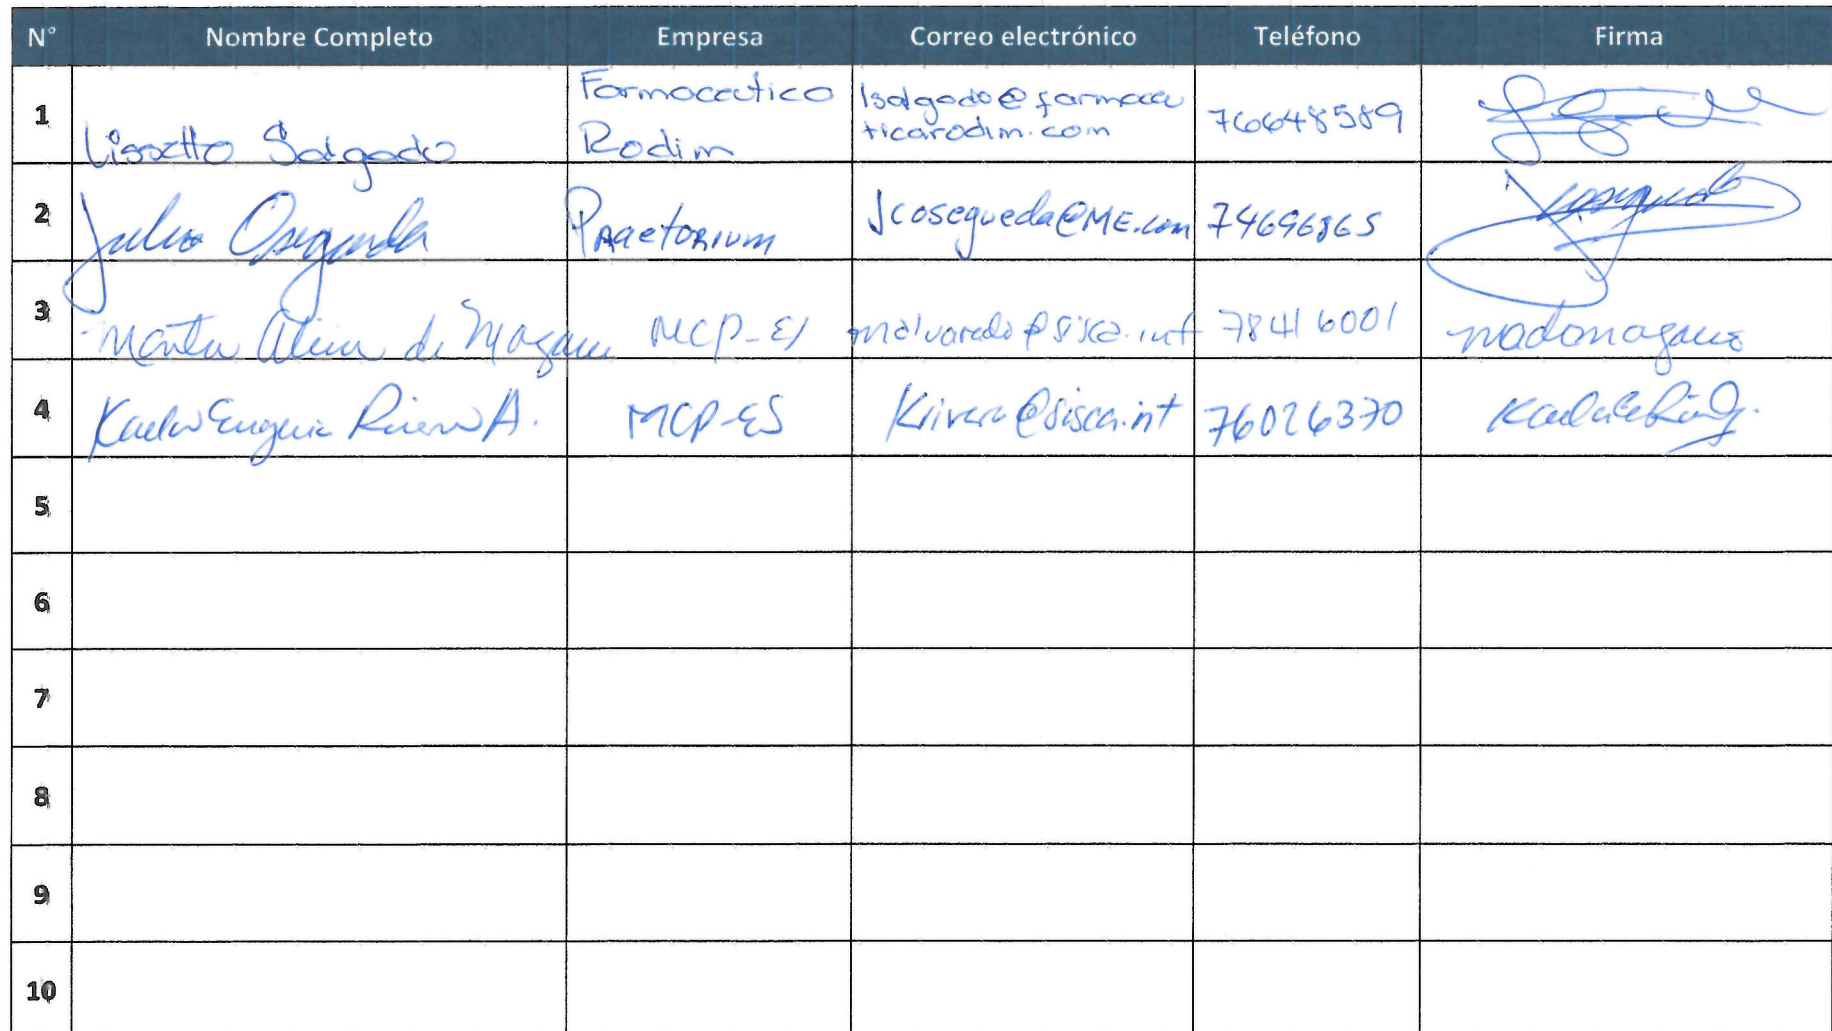 N° Nombre Completo Empresa Correo electrónico Teléfono Firma
1 Lissette Salgado Farmaceutica Rodim lsalgado@farmaceu
ticarodim.com 76648589
2 Julio Osegueda Praetorium Jcosegueda@ME.com 74696865
3 Marta de Magaña MCP-ES malvarado@sisca.int 78416001
4 Karla Eugenia Rivera A. MCP-ES Krivera@sisca.int 76026370
5
6
7
8
9
10